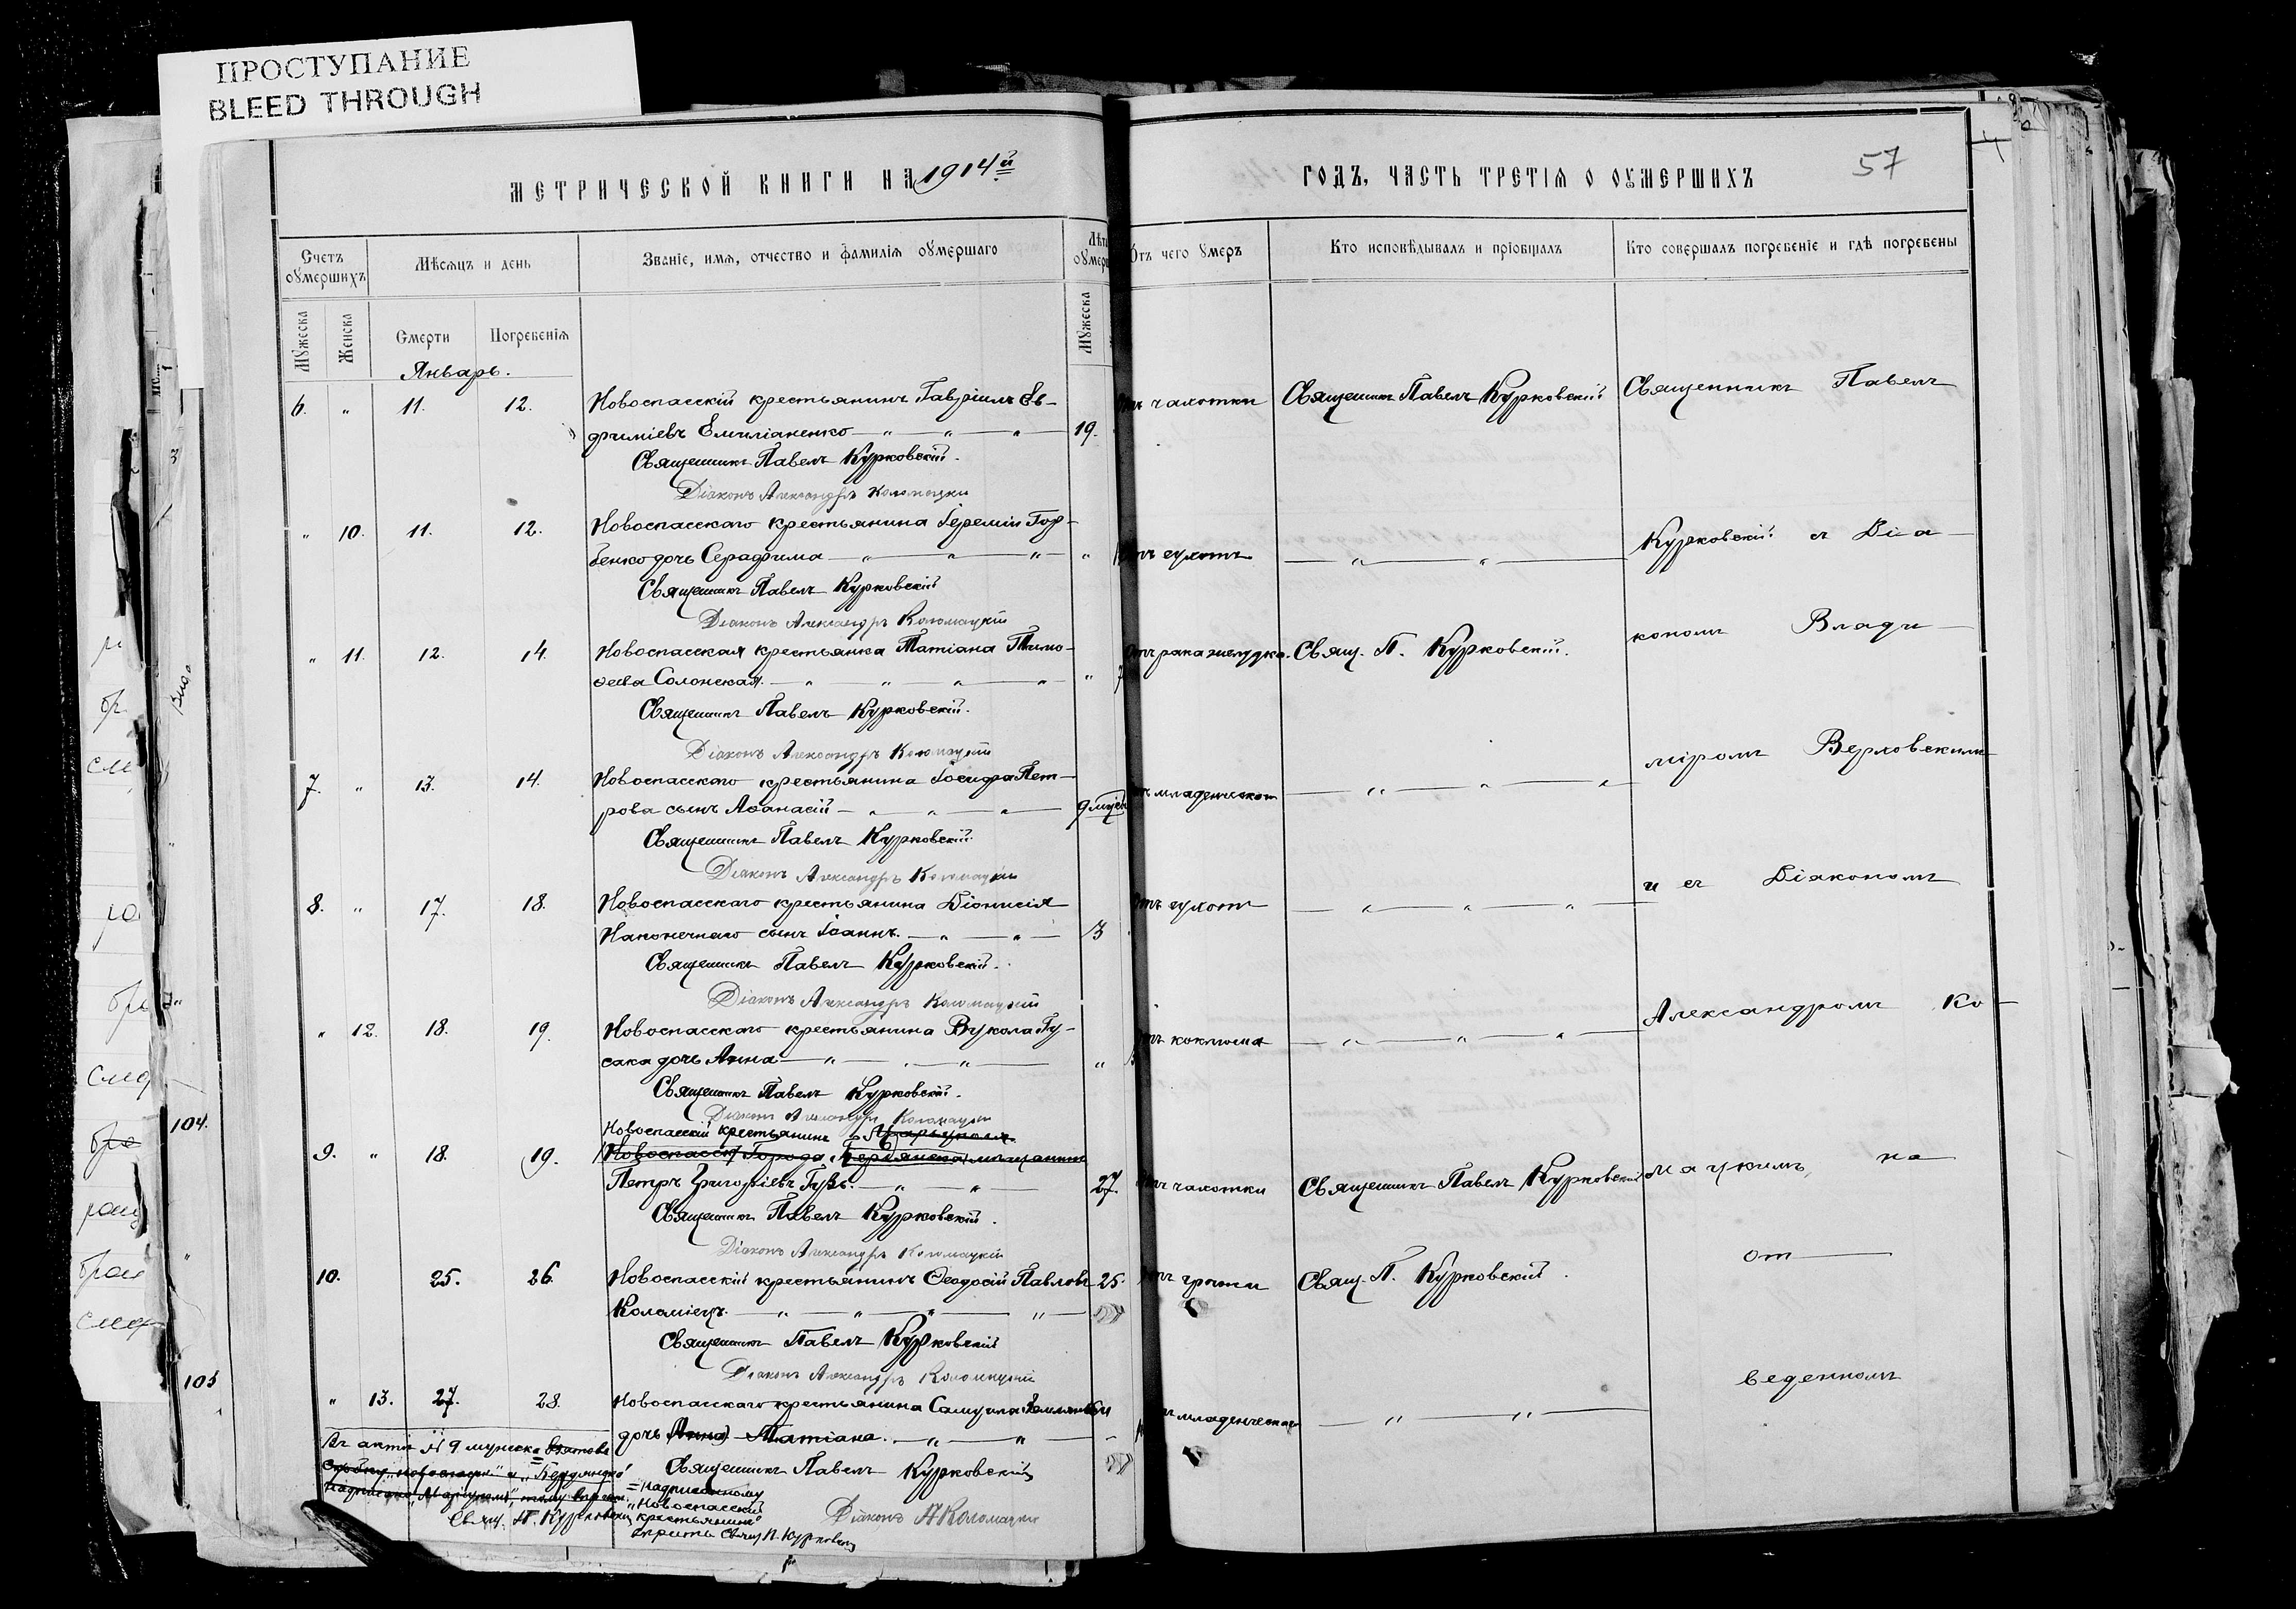 ПРОСТУПАНИЕ
BLEED THROUGH
МЕТРИЧЕСКОЙ КНИГИ НА 1914й
Счетъ оумершихъ
Мѣсяцъ и день
Званіе, имя, отчество и фамилія оумершаго
Лѣта
Мужеска
Женска
Смерти
Погребенія
Мужеска
Январь.
6. „ 11. 12. Новоспасскій крестьянинъ Гавріилъ Ев-
фиміевъ Емиліаненко — „ — „ — „ — 19.
Священникъ Павелъ Курковскій.
Діаконъ Александръ Коломацкій
„ 10. 11. 12. Новоспасскаго крестьянина Іереміи Гор-
бенко дочь Серафима — „ — „ — „ — „
Священникъ Павелъ Курковскій
Діаконъ Александръ Коломацкій
„ 11. 12. 14. Новоспасская крестьянка Татіана Тимо-
ѳеева Солонская. — „ — „ — „ — „ — „
Священникъ Павелъ Курковскій.
Діаконъ Александръ Коломацкій
7. „ 13. 14. Новоспасскаго крестьянина Іосифа Пет-
рова сынъ Аѳанасій — „ — „ — „ — 9 мѣс
Священникъ Павелъ Курковскій.
Діаконъ Александръ Коломацкій
8. „ 17. 18. Новоспасскаго крестьянина Діонисія
Наконечнаго сынъ Іоаннъ. — „ — „ — 3
Священникъ Павелъ Курковскій.
Діаконъ Александръ Коломацкій
„ 12. 18. 19. Новоспасскаго крестьянина Вукола Гу-
сака дочь Анна — „ — „ — „
Священникъ Павелъ Курковскій.
Діаконъ Александръ Коломацкій
104.
Новоспасскій крестьянинъ
9. „ 18. 19. Новоспасскій Города Бердянска мѣщанинъ
Петръ Григоріевъ Гузь. — „ — „ — 27.
Священникъ Павелъ Курковскій.
Діаконъ Александръ Коломацкій
10. 25. 26. Новоспасскій крестьянинъ Ѳеодосій Павловъ 25.
Коломіецъ. — „ — „ — „ — „ —
Священникъ Павелъ Курковскій
Діаконъ Александръ Коломацкій
105
„ 13. 27. 28. Новоспасскаго крестьянина Самуила
дочь (Анна) Татіана. — „ — „ —
Священникъ Павелъ Курковскій
Діаконъ А Коломацкій
Въ актѣ № 9 мужска
Свящ. П. Курковскій
= надписанному
„Новоспасскій
крестьянинъ"
вѣрить Свящ П. Курковскій
ГОДЪ, ЧАСТЬ ТРЕТІЯ О ОУМЕРШИХЪ
57
Отъ чего умеръ
Кто исповѣдывалъ и пріобщалъ
Кто совершалъ погребеніе и гдѣ погребены
Отъ чахотки Священникъ Павелъ Курковскій Священникъ Павелъ
Отъ сухотъ — „ — „ — Курковскій съ Діа-
Отъ рака желудка. Свящ. П. Курковскій. кономъ Влади-
міромъ Верховскимъ
Отъ младенческой — „ — „ — „
и съ Діакономъ
Отъ сухотъ — „ — „ — „ —
Александромъ Ко-
Отъ коклюша — „ — „ — „ —
Отъ чахотки Священникъ Павелъ Курковскій ломацкимъ, на
Отъ грыжи Свящ. П. Курковскій. от-
веденномъ
Отъ младенческой — „ — „ —